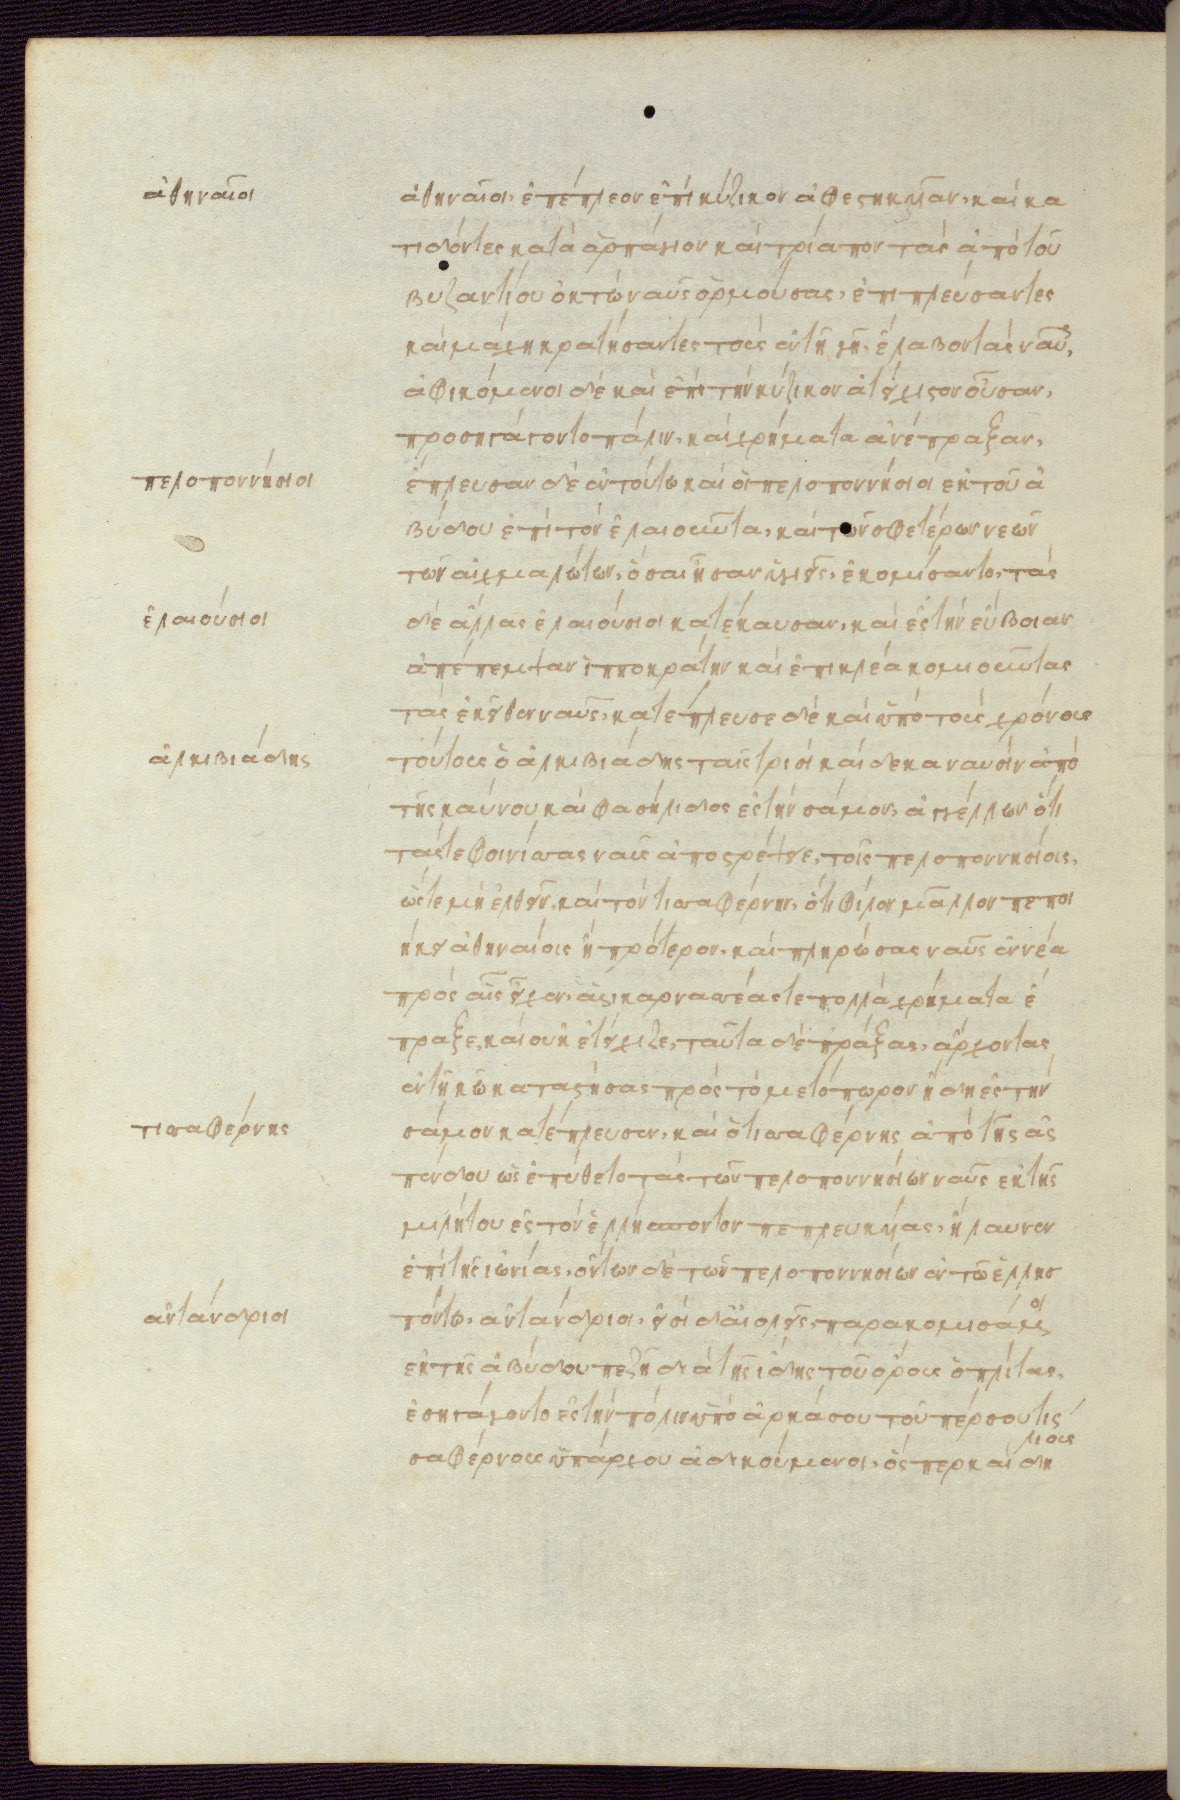 ἀθηναῖοι
ἀθηναῖοι, ἐπέπλεον ἐπὶ κύζικον ἀφεστηκυῖαν, καὶ κα
τιδόντες κατὰ ἁρπάγιον καὶ πρίαπον τὰς ἀπὸ τοῦ
βυζαντίου ὀκτὼ ναῦς ὁρμούσας, ἐπιπλεύσαντες
καὶ μάχη κρατήσαντες τοὺς ἐν τῆ γῆ, ἔλαβον τὰς ναῦς,
ἀφικόμενοι δὲ καὶ ἐπὶ τὴν κύζικον ἀτείχιστον οὖσαν,
προσηγάγοντο πάλιν, καὶ χρήματα ἀνέπραξαν,
πελοποννήσιοι
ἔπλευσαν δὲ ἐν τούτω καὶ οἱ πελοποννήσιοι ἐκ τοῦ ἀ
βύδου ἐπὶ τὸν ἐλαιοῦντα, καὶ τῶν σφετέρων νεῶν
τῶν αἰχμαλώτων, ὅσαι ἦσαν ὑγιεῖς, ἐκομίσαντο, τὰς
ἐλαιούσιοι
δὲ ἄλλας ἐλαιούσιοι κατέκαυσαν, καὶ ἐς τὴν εὔβοιαν
ἀπέπεμψαν ἱπποκράτην καὶ ἐπικλέα κομιοῦντας
τὰς ἐκεῖθεν ναῦς, κατέπλευσε δὲ καὶ ὑπὸ τοὺς χρόνους
ἀλκιβιάδης
τούτους ὁ ἀλκιβιάδης ταῖς τρισὶ καὶ δέκα ναυσὶν ἀπὸ
τῆς καύνου καὶ φασήλιδος ἐς τὴν σάμον, ἀγγέλλων ὅτι
τάς τε φοινίσσας ναῦς ἀποστρέψειε, τοῖς πελοποννησίοις,
ὥστε μὴ ἐλθεῖν, καὶ τὸν τισσαφέρνην, ὅτι φίλον μᾶλλον πεποι
ήκει ἀθηναίοις ἢ πρότερον, καὶ πληρώσας ναῦς ἐννέα
πρὸς αἷς εἶχεν, ἁλικαρνασσέας τε πολλὰ χρήματα ἐ
πραξε, καὶ οὐκ ἐτείχιζε, ταῦτα δὲ πράξας, ἄρχοντας
ἐν τῆ κῶ καταστήσας πρὸς τὸ μετόπωρον ἤδη ἐς τὴν
τισσαφέρνης
σάμον κατέπλευσεν, καὶ ὁ τισσαφέρνης ἀπὸ τῆς ἀσ
πένδου ὡς ἐπύθετο τὰς τῶν πελοποννησίων ναῦς ἐκ τῆς
μιλήτου ἐς τὸν ἑλλήσποντον πεπλευκυίας, ἤλαυνεν
ἐπὶ τῆς ἰωνίας, ὄντων δὲ τῶν πελοποννησίων ἐν τῶ ἑλλησ
ἀντάνδριοι
πόντω, ἀντάνδριοι, εἰσὶ δ᾽ αἰολεῖς, παρακομισάμενοι
ἐκ τῆς ἀβύδου πεζῆ διὰ τῆς ἴδης τοῦ ὄρους ὁπλίτας,
ἐσηγάγοντο ἐς τὴν πόλιν ὑπὸ ἀρκάσου τοῦ πέρσου τισ
σαφέρνους ὑπάρχου ἀδικούμενοι, ὅσπερ καὶ δηλίους